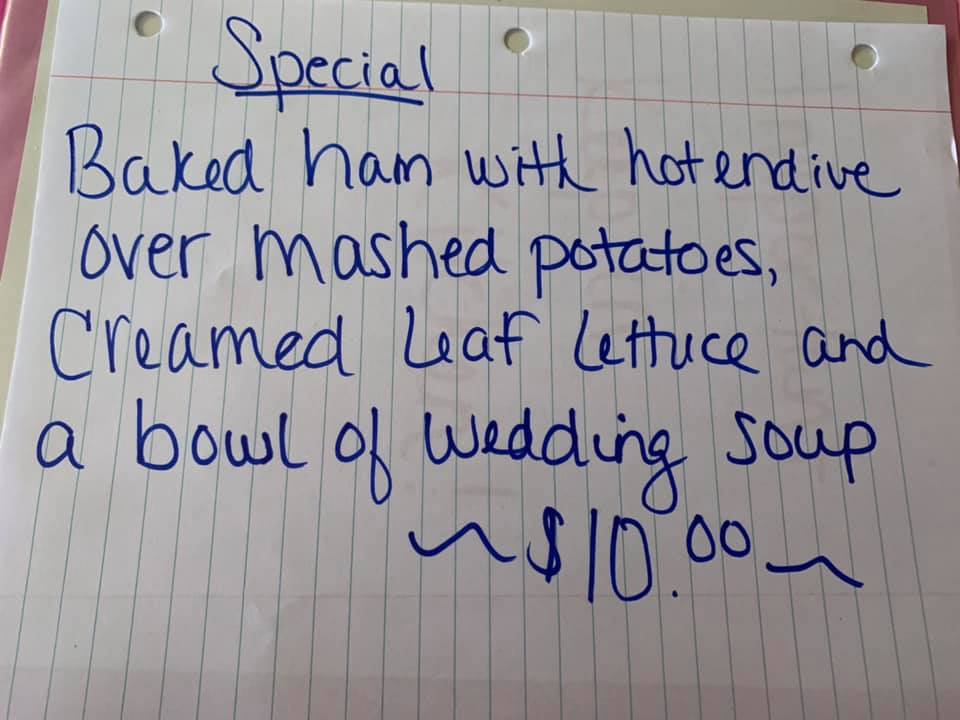 Special
Baked ham with hot endive
over mashed potatoes,
Creamed Leaf Lettuce and
a bowl of Wedding Soup
~$10.00~